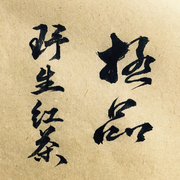 極品
野生红茶